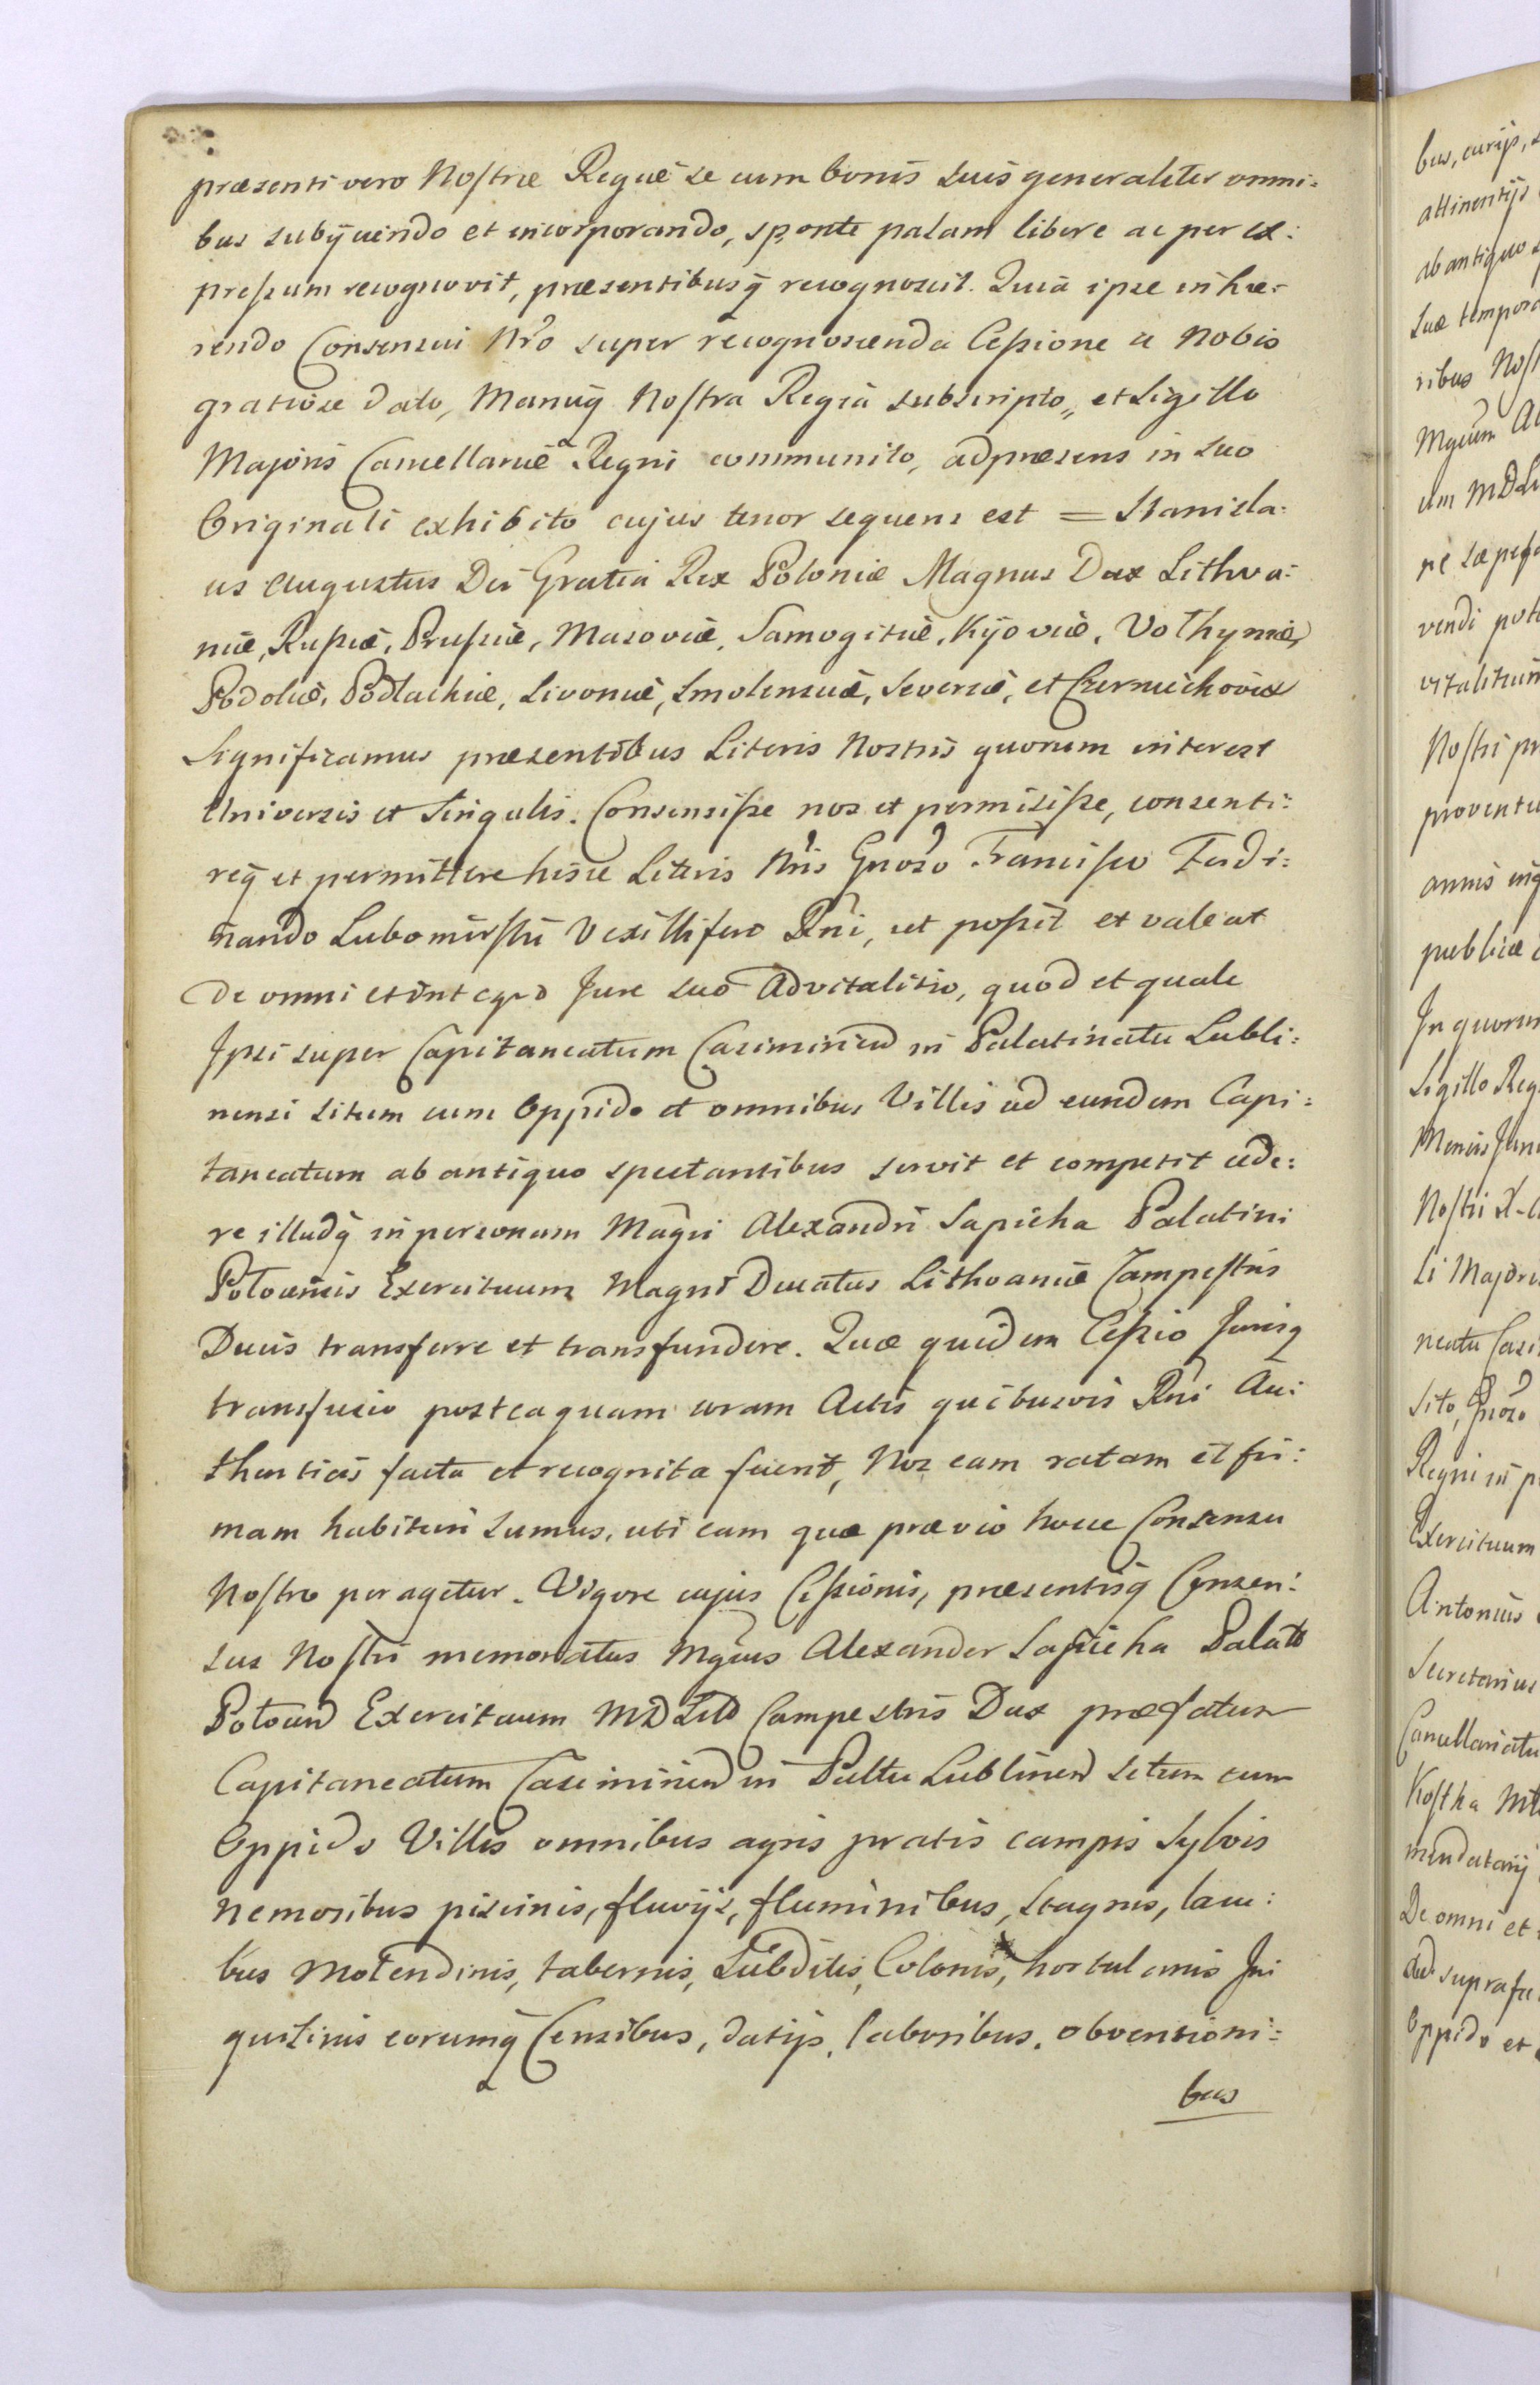 præsenti vero Nostræ Regiæ se cum bonis suis generaliter omni:
bus subijciendo et incorporando, sponte palam libere ac per ex:
pressum recognovit, præsentibusq̃ recognoscit. Quia ipse inhæ:
rendo Consensui Nr̃o super recognoscenda Cessione a Nobis
gratiose dato, Manuq̃ Nostra Regia subscripto, et Sigillo
Majoris Cancellariæ Regni communito, ad præsens in suo
Originali exhibito cujus tenor sequens est = Stanisla:
us Augustus Dei Gratia Rex Poloniæ Magnus Dux Lithva:
niæ, Russiæ, Prussiæ, Masoviæ, Samogitiæ, Kijoviæ, Volhyniæ,
Podoliæ, Podlachiæ, Livoniæ, Smolensciæ, Severiæ, et Czerniechoviæ
Significamus præsentibus Literis Nostris quorum interest
Universis et Singulis. Consensisse nos et permisisse, consenti:
req̃ et permittere hisce Literis Nr̃is Gnoso Francisco Ferdi:
nando Lubomirski Vexillifero Rni, ut possit et valeat
de omni et integro Jure suo Advitalitio, quod et quale
Ipsi super Capitaneatum Casimirien in Palatinatu Lubli:
nensi situm cum Oppido et omnibus Villis ad eundem Capi:
taneatum ab antiquo spectantibus servit et competit cede:
re illudq̃ in personam Magci Alexandri Sapieha Palatini
Polocensis Exercituum Magni Ducatus Lithvaniæ Campestris
Ducis transferre et transfundere. Quæ quidem Cessio Jurisq̃
transfusio posteaquam coram Actis quibusvis Rni Au:
thenticis facta et recognita fuerit, Nos eam ratam et fir:
mam habituri sumus, uti eam quæ prævio hocce Consensu
Nostro peragetur. Vigore cujus Cessionis, præsentisq̃ Consen:
sus Nostri memoratus Mgcus Alexander Sapieha Palat
Polocen Exercituum MDLit Campestris Dux præfatum
Capitaneatum Casimirien in Pultu Lublinen situm cum
Oppido Villis omnibus agris pratis campis Sylvis
Nemoribus piscinis, fluvijs, fluminibus, stagnis, lacu:
bus Molendinis, tabernis, Subditis, Colonis, hortulanis In
quilinis eorumq̃ Censibus, datijs, laboribus, obventioni:
bus
bus, curijs,
attinentijs
ab antiquo
suæ tempora
ribus
Mgcum
um MDLi
vendi
vitalitium
Nostri
proventu
annis
publicæ
In quorum
Sigillo Reg
Mensis
Nostri
li Majoris
neatu Casi
sito, Gnoso
Regni in
Exercituum
Antonius
Secretarius
Cancellariatu
mendatarij
De omni et
Oppido et